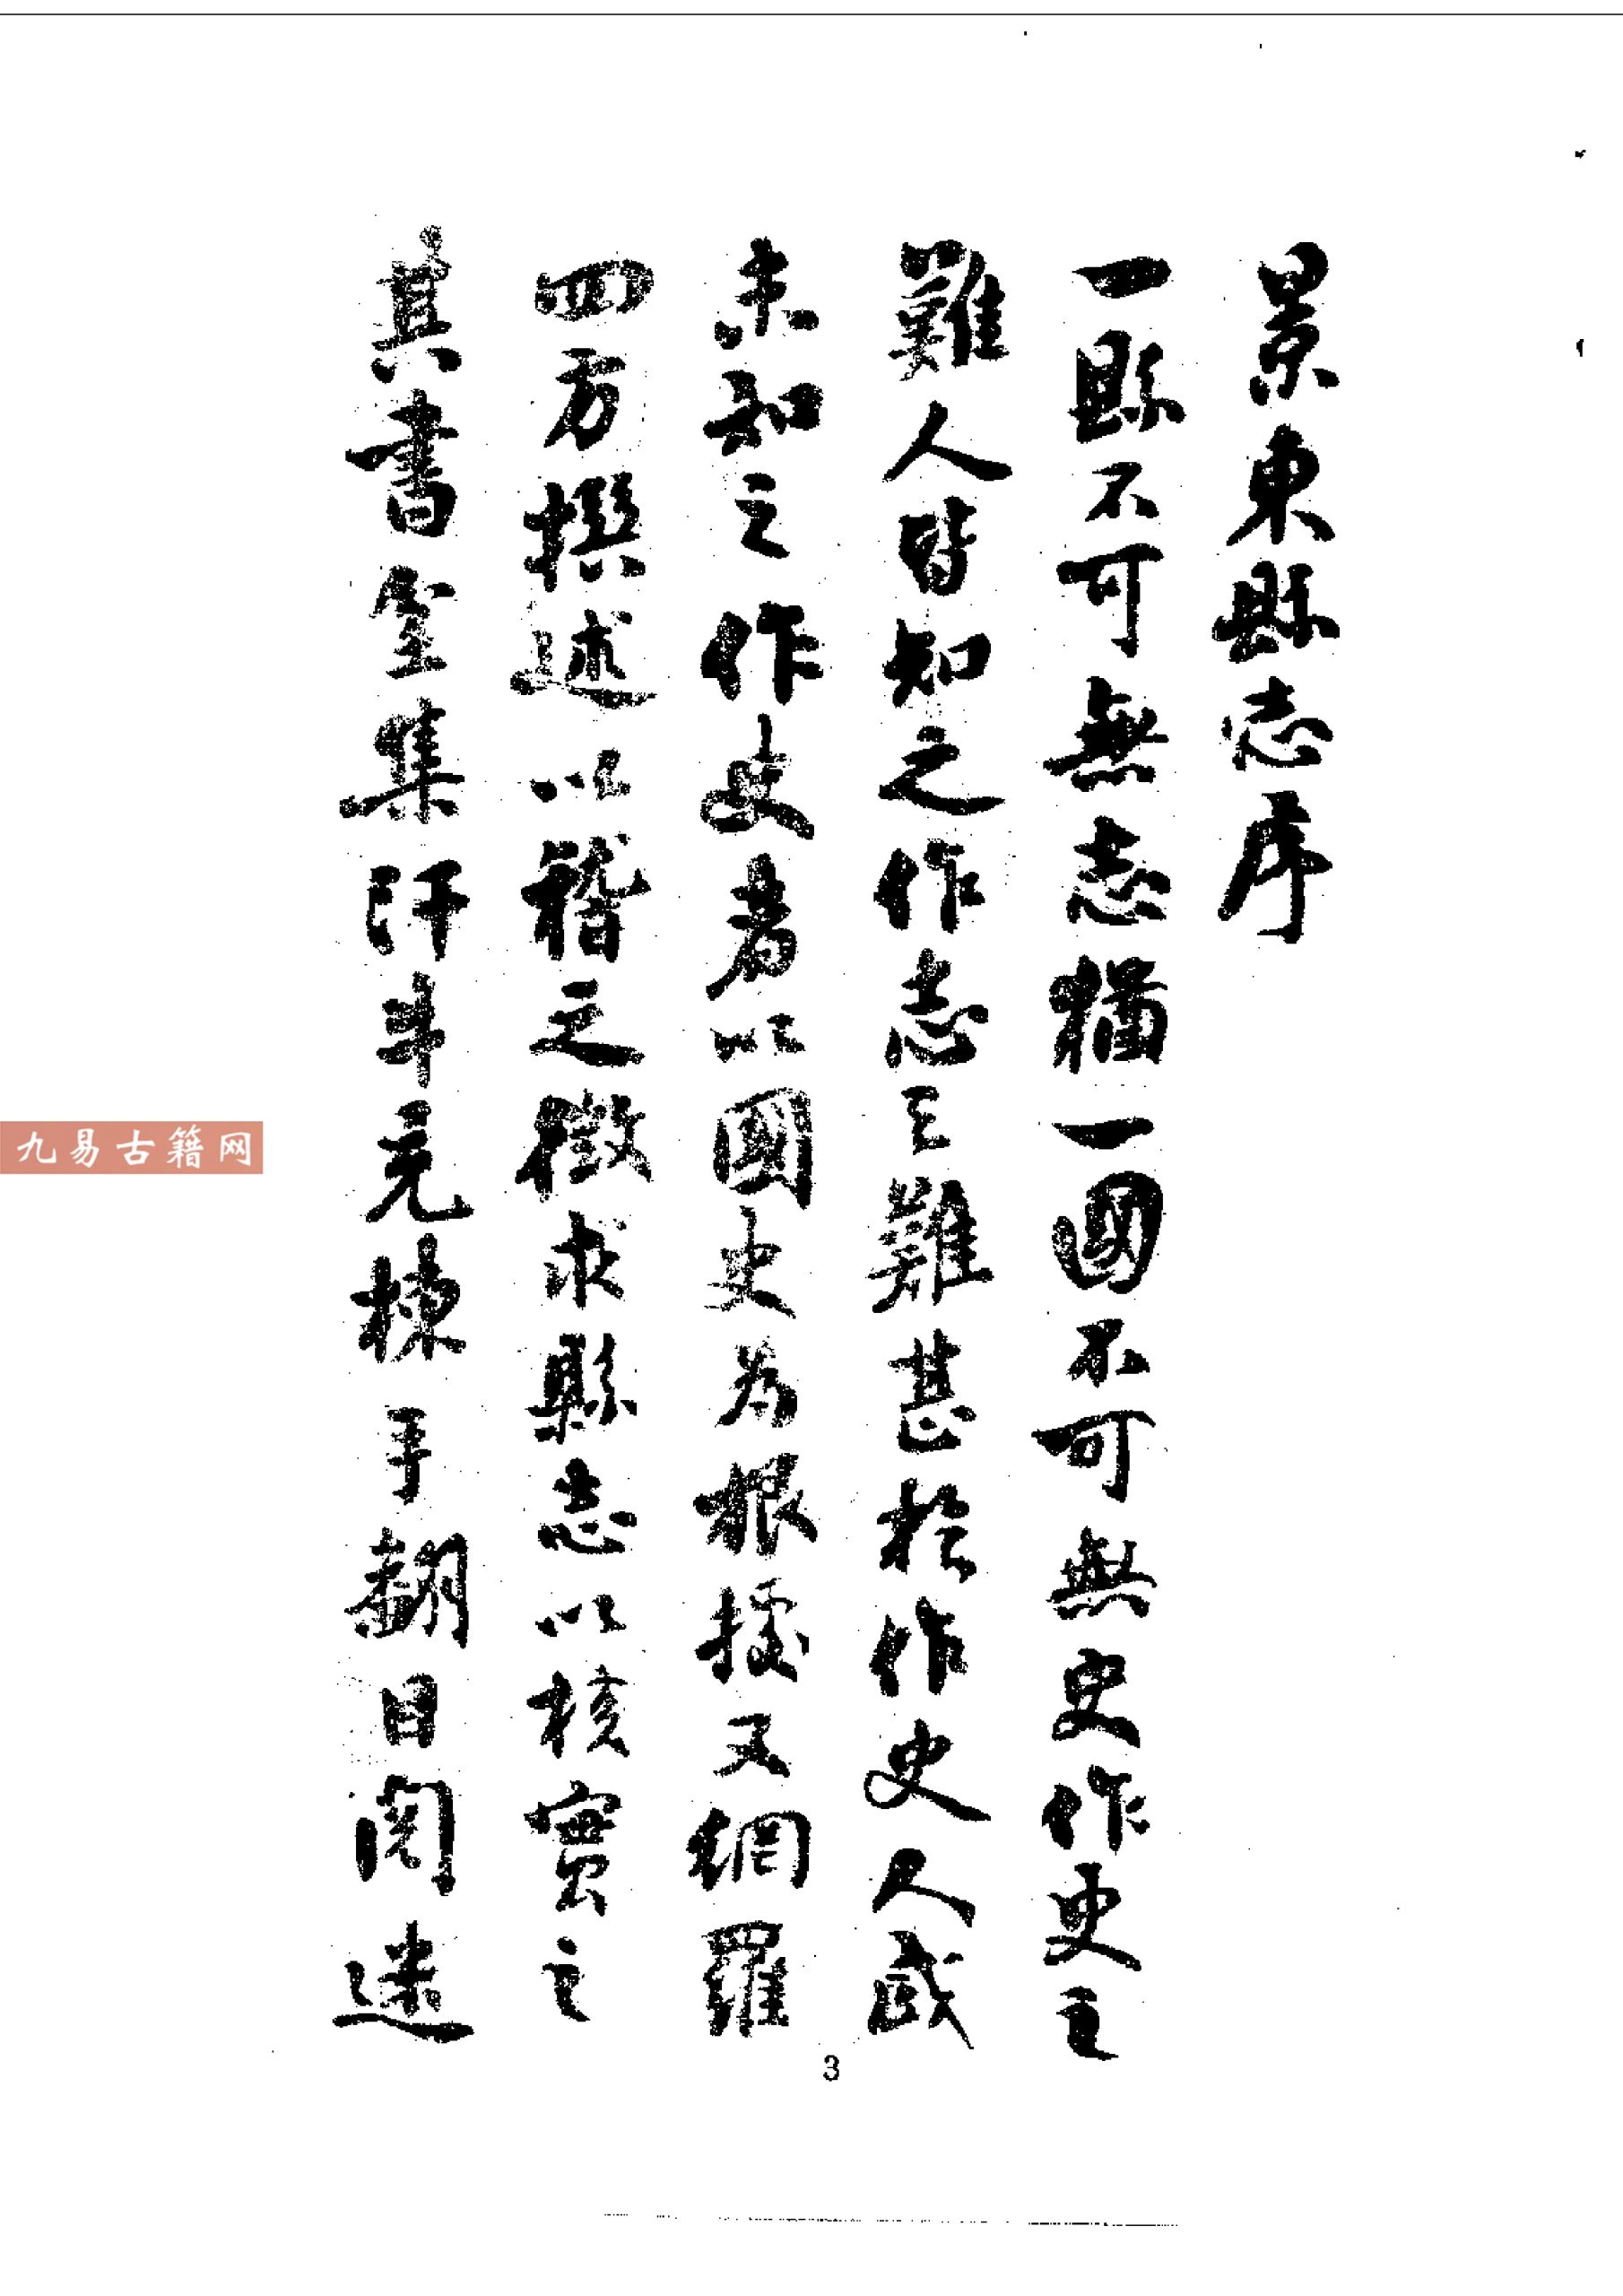 景東縣志序
一縣不可無志猶一國不可無史作史之
難人皆知之作志之難甚於作史人或
未知之作史者以國史為根據又網羅
四方撰述以稽之徵求縣志以核實之
其書坌集汗牛充棟手翻目閱迷
3
九易古籍网